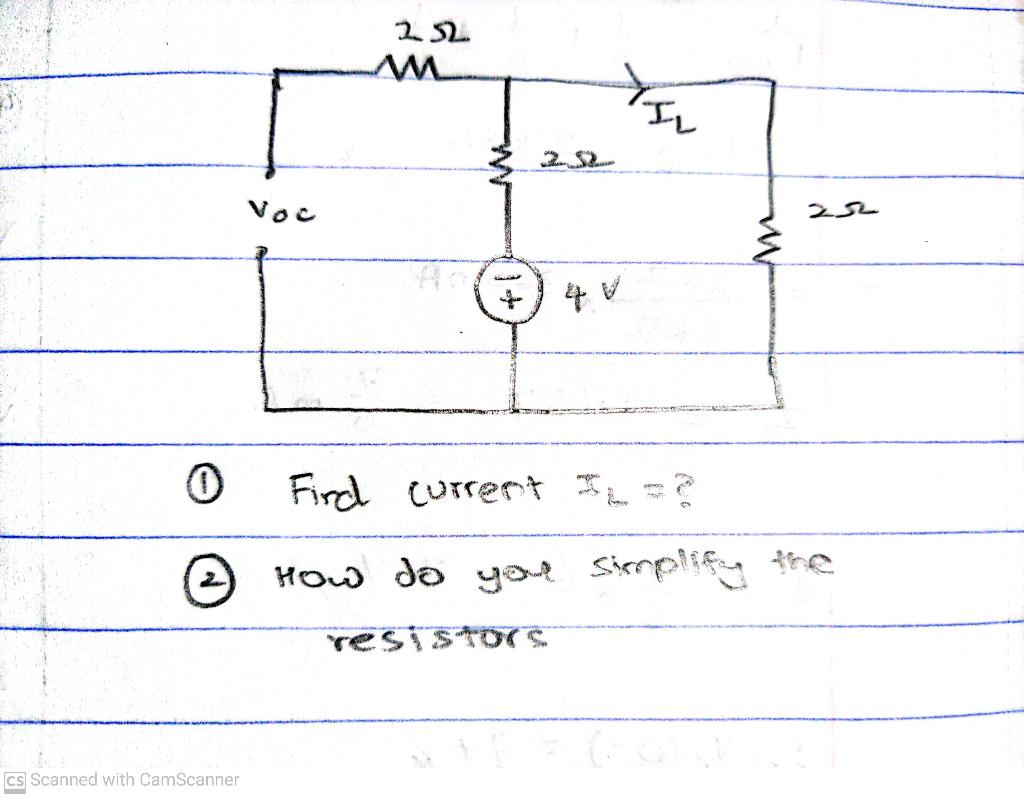 2 Ω
I_L
2Ω
Voc
2Ω
-
+
4 V
① Find current I_L = ?
② How do you simplify the
resistors
CS Scanned with CamScanner